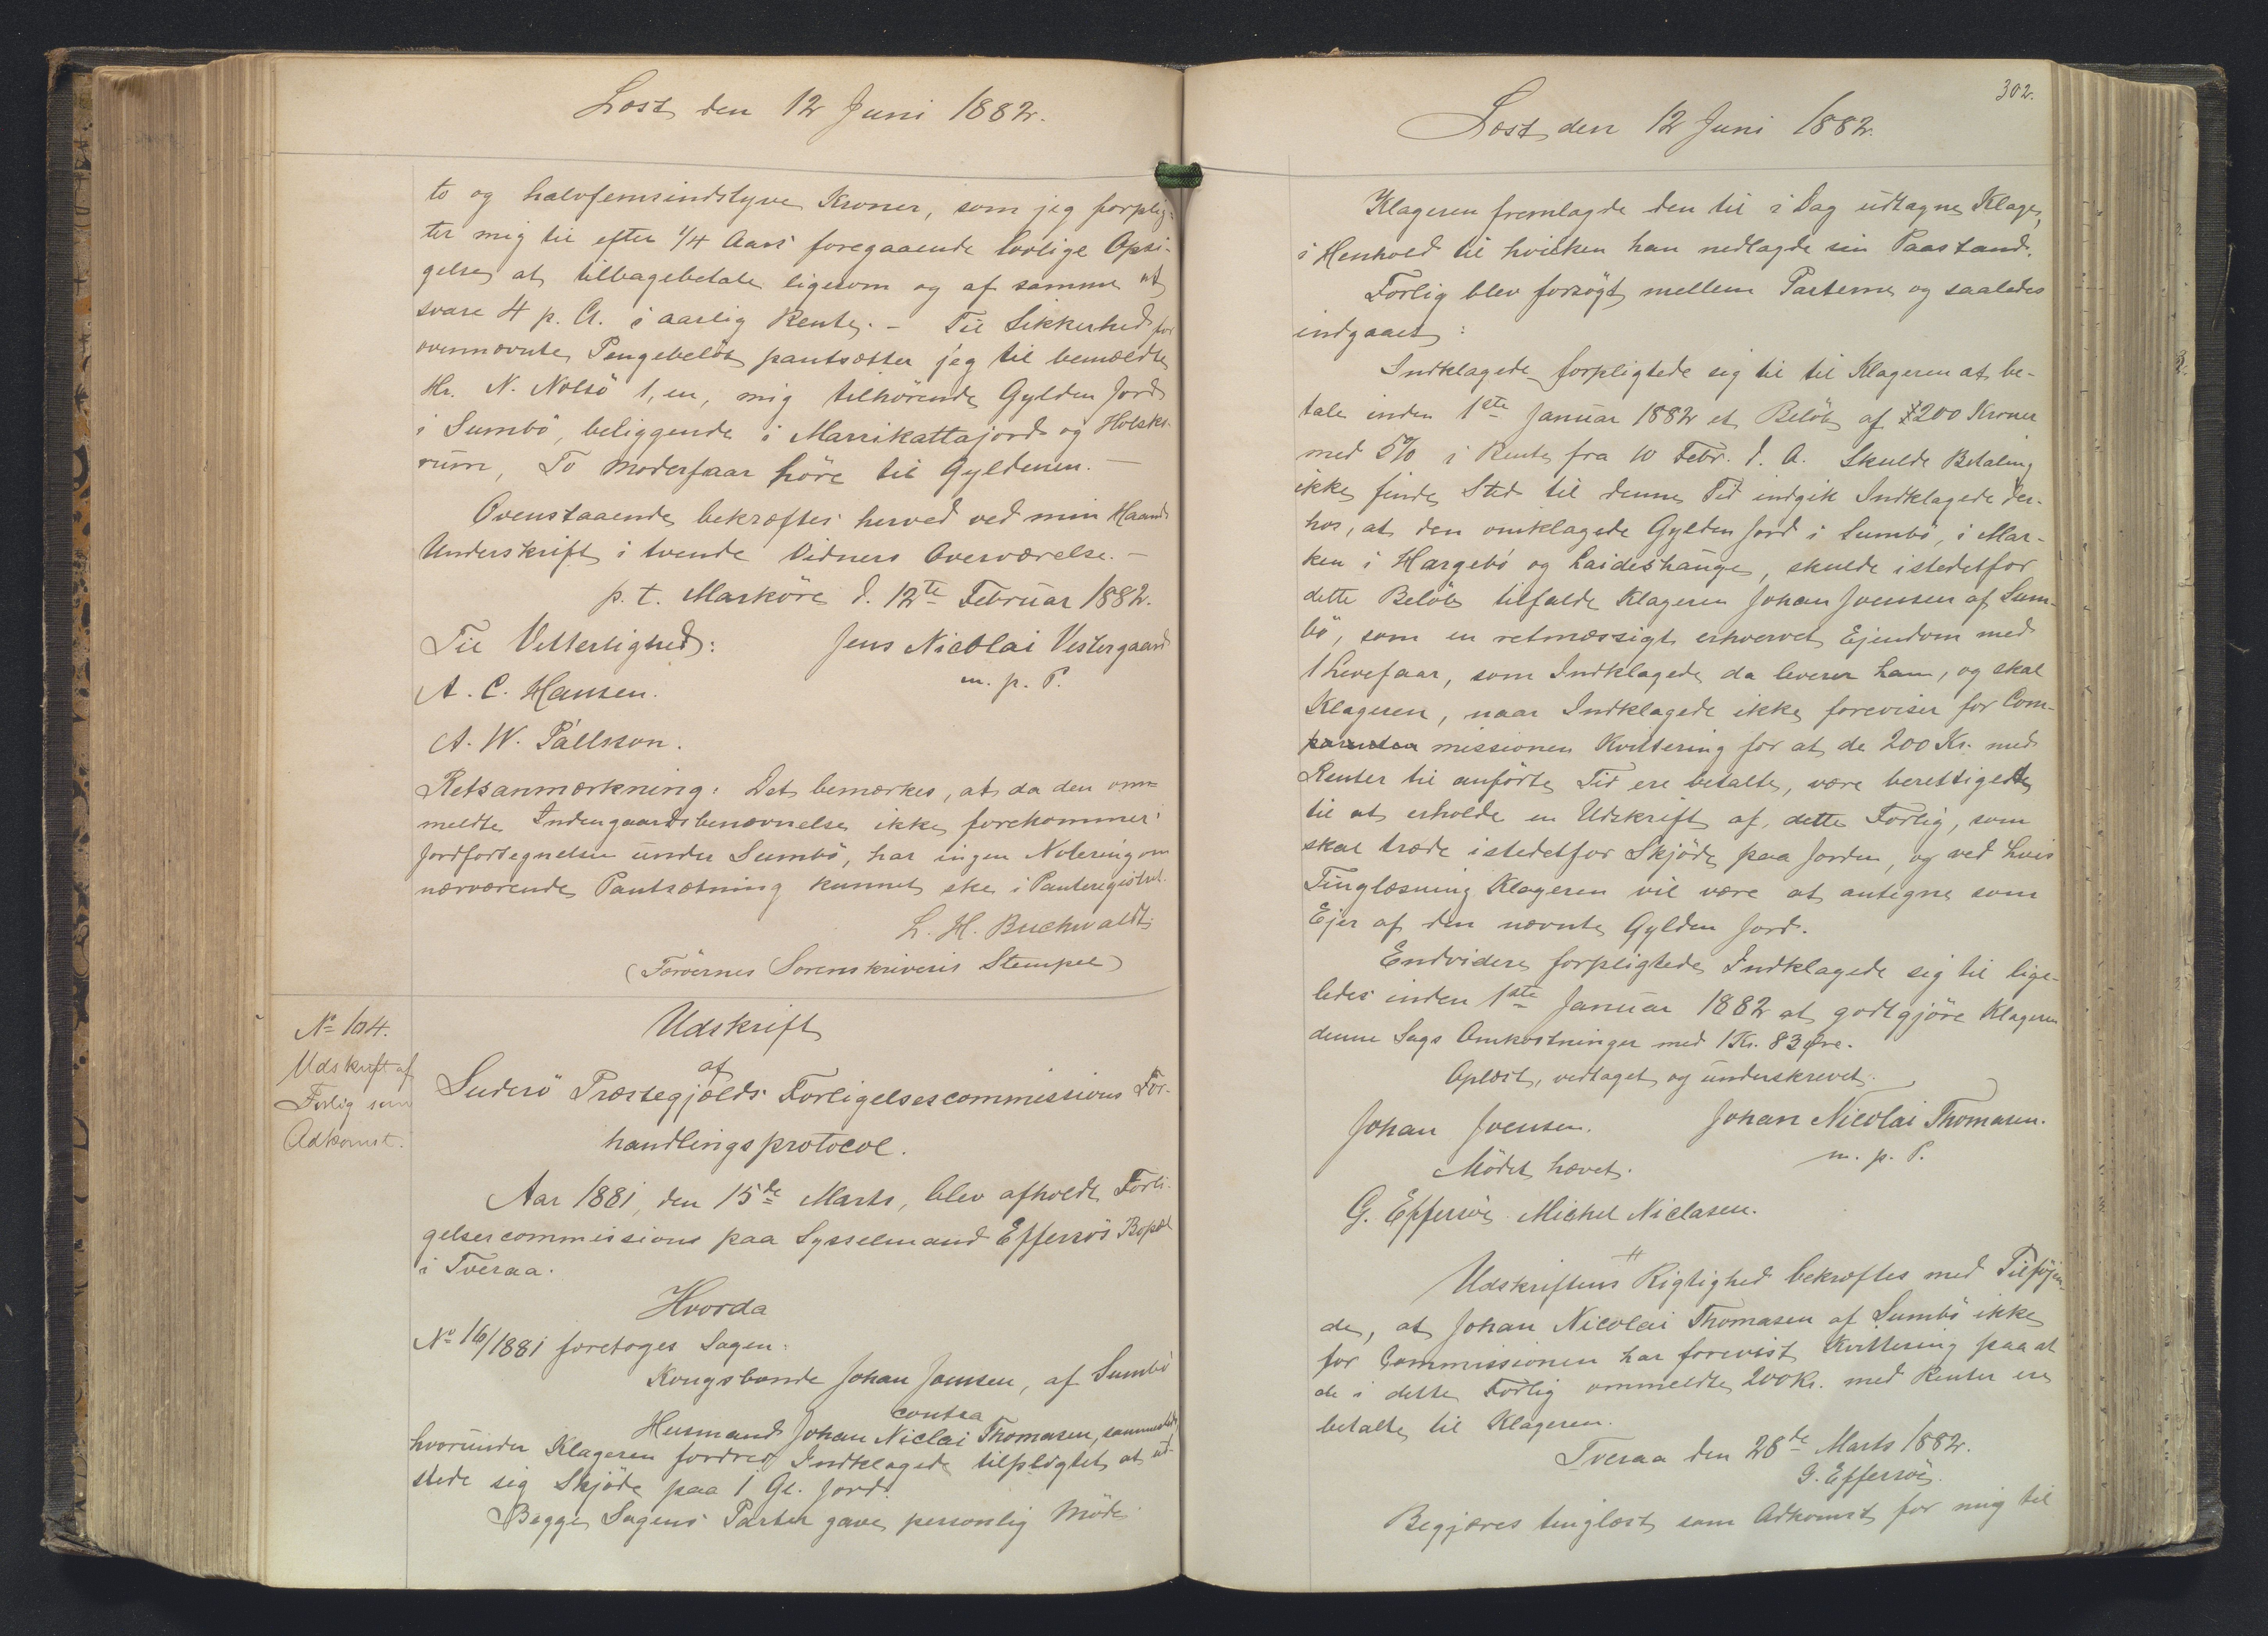 Læst den 12 Juni 1882.
to og halvfemsindstyve Kroner, som jeg forplig-
ter mig til efter 1/4 Aars foregaaende lovlige Opsi-
gelse at tilbagebetale ligesom og af samme at
svare 4 p. Ct. i aarlig Rente. - Til Sikkerhed for
ovennævnte Pengebeløb pantsætter jeg til bemældte
Hr. N. Nolsö 1, en, mig tilhörende Gylden Jord
i Sumbö, beliggende i Marrikattajord og Holsks-
rum, To Moderfaar höre til Gyldenen. -
Ovenstaaende bekræftes herved ved min Haands
Underskrift i tvende Vidners Overværelse. -
p. t. Marköre d. 12te Februar 1882.
Til Vitterlighed: Jens Nicolai Vestergaard
A. C. Hansen. m. p. P.
A. W. Pállsson.
Retsanmærkning: Det bemærkes, at da den om-
meldte Indengaardsbenævnelse ikke forekommer i
Jordfortegnelsen under Sumbö, har ingen Notering om
nærværende Pantsætning kunnet ske i Panteregistret.
L. H. Buchwaldt
(Færöernes Sorenskriveris Stempel)
No 104.
Udskrift af
Forlig som
Adkomst.
Udskrift
af
Suderö Præstegjælds Forligelsescommissions For-
handlingsprotocol.
Aar 1881, den 15de Marts, blev afholdt Forli-
gelsescommissions paa Sysselmand Effersös Bopæl
i Tveraa.
Hvorda
No 16/1881 foretoges Sagen:
Kongsbonde Johan Joensen, af Sumbö
contra
Husmand Johan Niclai Thomasen, sammesteds
hvorunder Klageren fordrer Indklagede tilpligtet at ud-
stede sig Skjöde paa 1 Gl. Jord.
Begge Sagens Parter gave personlig Möde.
302.
Læst den 12 Juni 1882.
Klageren fremlagde den til i Dag udtagne Klage,
i Henhold til hvilken han nedlagde sin Paastand.
Forlig blev forsögt mellem Parterne og saaledes
indgaaet:
Indklagede forpligtede sig til til Klageren at be-
tale inden 1ste Januar 1882 et Belöb af 200 Kroner
med 5% i Rente fra 10 Febr. d. A. Skulde Betaling
ikke finde Sted til denne Tid indgik Indklagede der-
hos, at den omklagede Gylden Jord i Sumbö, i Mar-
ken i Hargebö og Laideshauge, skulde istedetfor
dette Belöb tilfalde Klageren Johan Joensen af Sum-
bö, som en retmæssigt erhvervet Ejendom med
1 Levefaar, som Indklagede da leverer ham, og skal
Klageren, naar Indklagede ikke foreviser for Com-
missionen Kvittering for at de 200 Kr. med
Renter til anförte Tid ere betalte, være berettiget
til at erholde en Udskrift af dette Forlig, som
skal træde istedetfor Skjöde paa Jorden, og ved hvis
Tinglæsning Klageren vil være at antegne som
Ejer af den nævnte Gylden Jord.
Endvidere forpligtede Indklagede sig til lige-
ledes inden 1ste Januar 1882 at godtgjöre Klageren
denne Sags Omkostninger med 1 Kr. 83 Øre.
Oplæst, vedtaget og underskrevet.
Johan Joensen. Johan Nicolai Thomasen.
Mödet hævet. m. p. P.
G. Effersöe Michel Niclasen.
Udskriftens Rigtighed bekræftes med Tilföjen-
de, at Johan Nicolai Thomasen af Sumbö ikke
for Commissionen har forevist Kvittering paa at
de i dette Forlig ommeldte 200 Kr. med Renter ere
betalte til Klageren.
Tveraa den 28de Marts 1882.
G. Effersöe.
Begjæres tinglæst som Adkomst for mig til